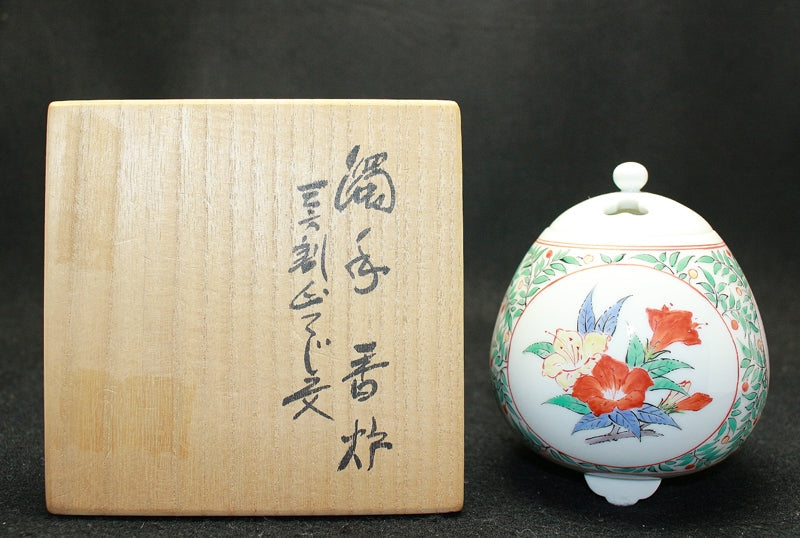 濁手 香炉
三方割山つつじ文